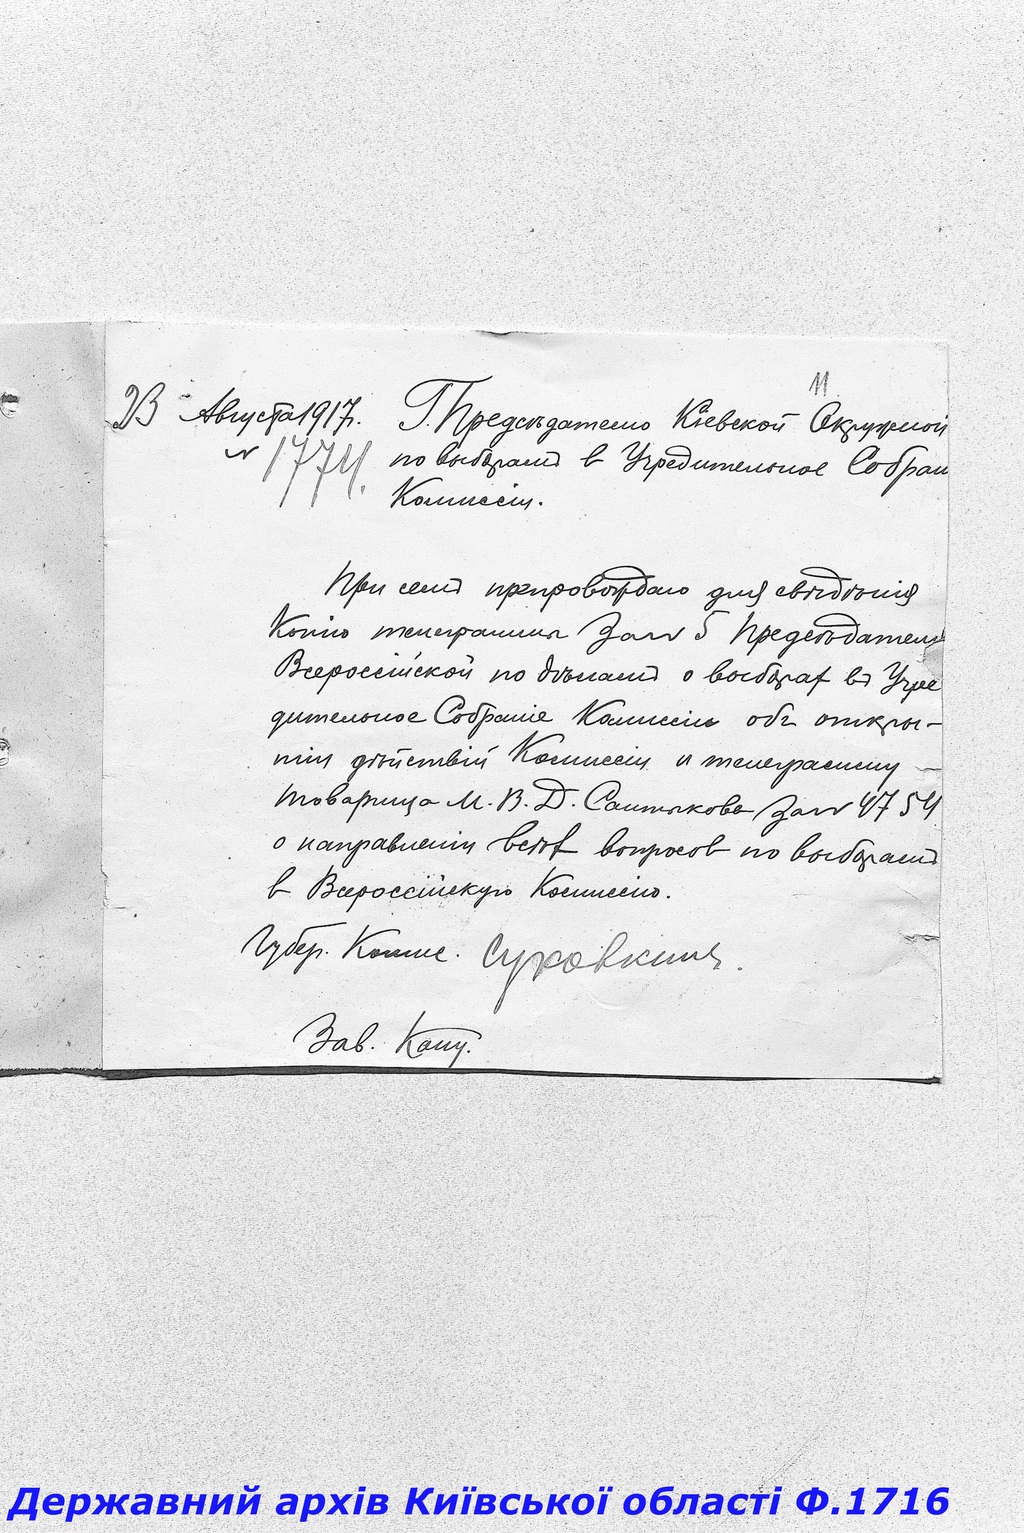 11
23 Августа 1917г.
№ 17741.
Г. Предсѣдателю Кіевской Окружной
по выборамъ в Учредительное Собран
Комиссіи.
При семъ препровождаю для свѣдѣнія
Копію телеграммы За № 5 Предсѣдателя
Всероссійской по дѣламъ о выборах въ Учре
дительное Собраніе Комиссіи объ откры-
тіи дѣйствій Комиссіи и телеграмму
Товарища М.В.Д. Салтыкова За № 4754
о направленіи всѣх вопросов по выборамъ
в Всероссійскую Комиссію.
Губер. Комис. Суковкинъ.
Зав. Канц.
Державний архів Київської області Ф.1716